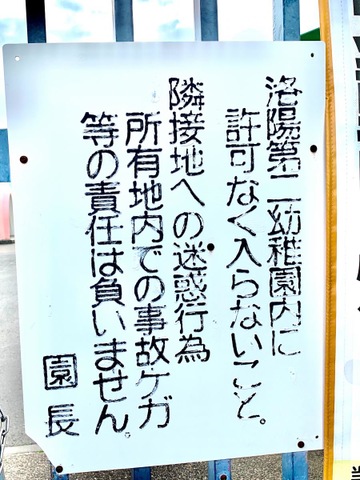 洛陽第二幼稚園内に
許可なく入らないこと。
隣接地への迷惑行為
所有地内での事故ケガ
等の責任は負いません。
園長